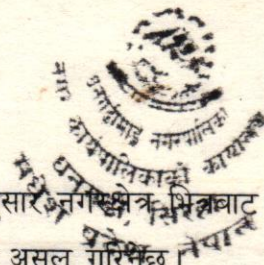 धनगढीमाई नगरपालिका
नगर कार्यपालिकाको कार्यालय
धनगढी, सिराहा
मधेश प्रदेश, नेपाल
सार नगरक्षेत्र भित्रबाट
असुल गरिनेछ।